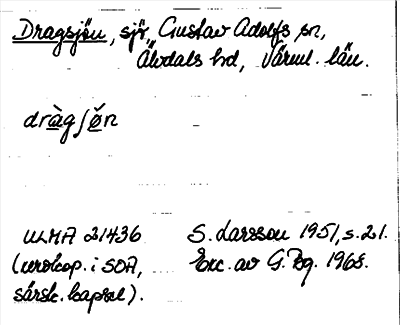 Dragsjön, sjö, Gustav Adolfs sn,
Älvdals hd, Värml. län.
dràgʃø̌n
ULMA 21436
(xerokop. i SOA,
särsk. kapsel).
S. Larsson 1951, s. 21.
Exc. av G. Bg. 1968.